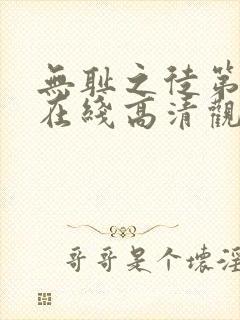 無耻之徒第
在綫高清觀
哥哥是个壞淫